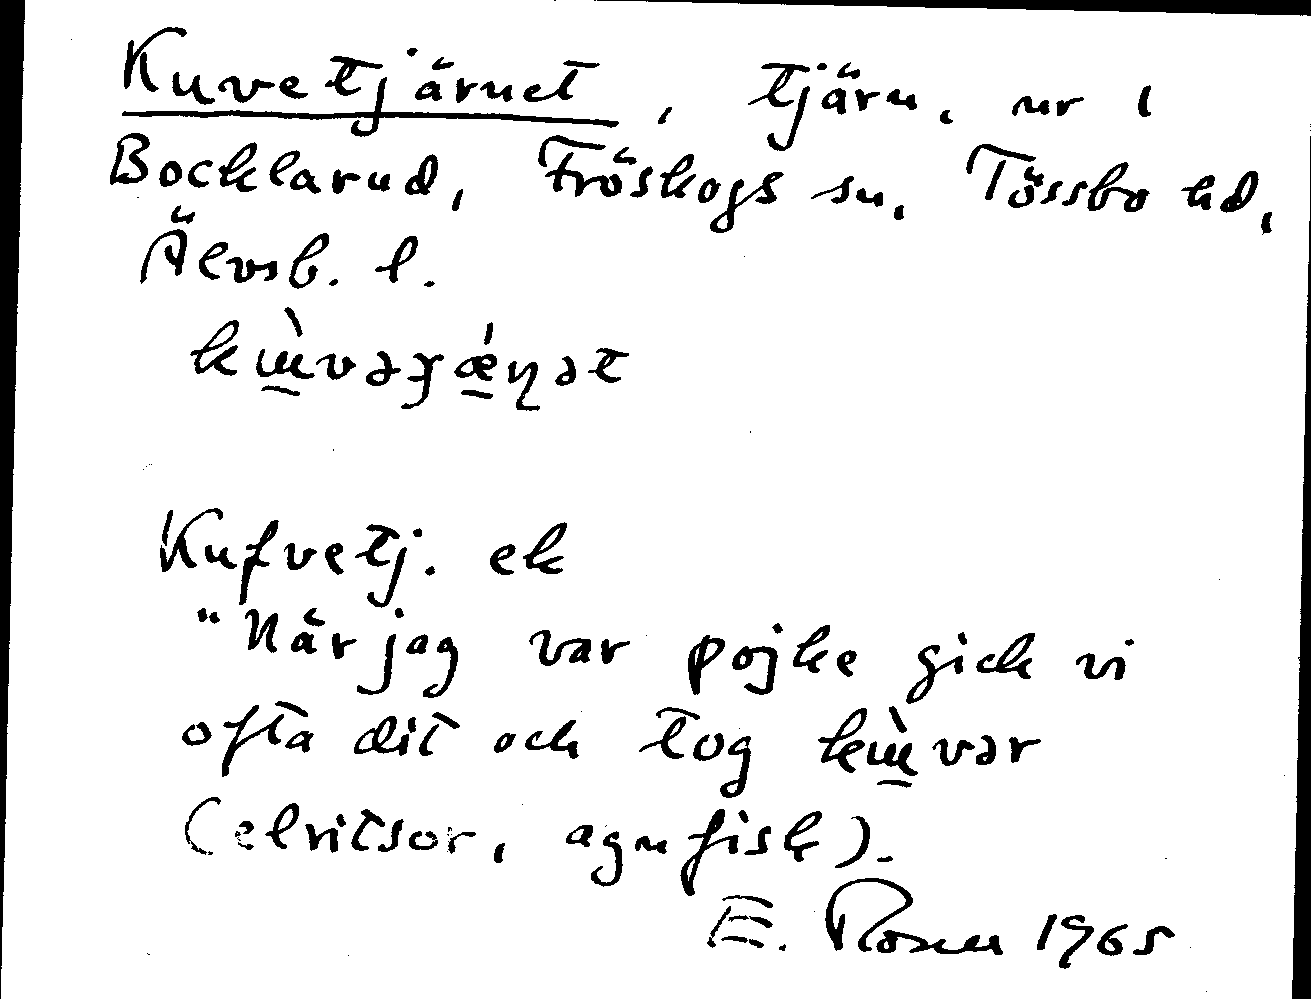 Kuvetjärnet, tjärn, nr 1
Bocklarud, Fröskogs sn, Tössbo hd,
Älvsb. l.
kɯ̀vəɟǽɳət
Kufvetj. ek
"När jag var pojke gick vi
ofta dit och tog kɯ̀vər
(elritsor, agnfisk).
E. Rosell 1965